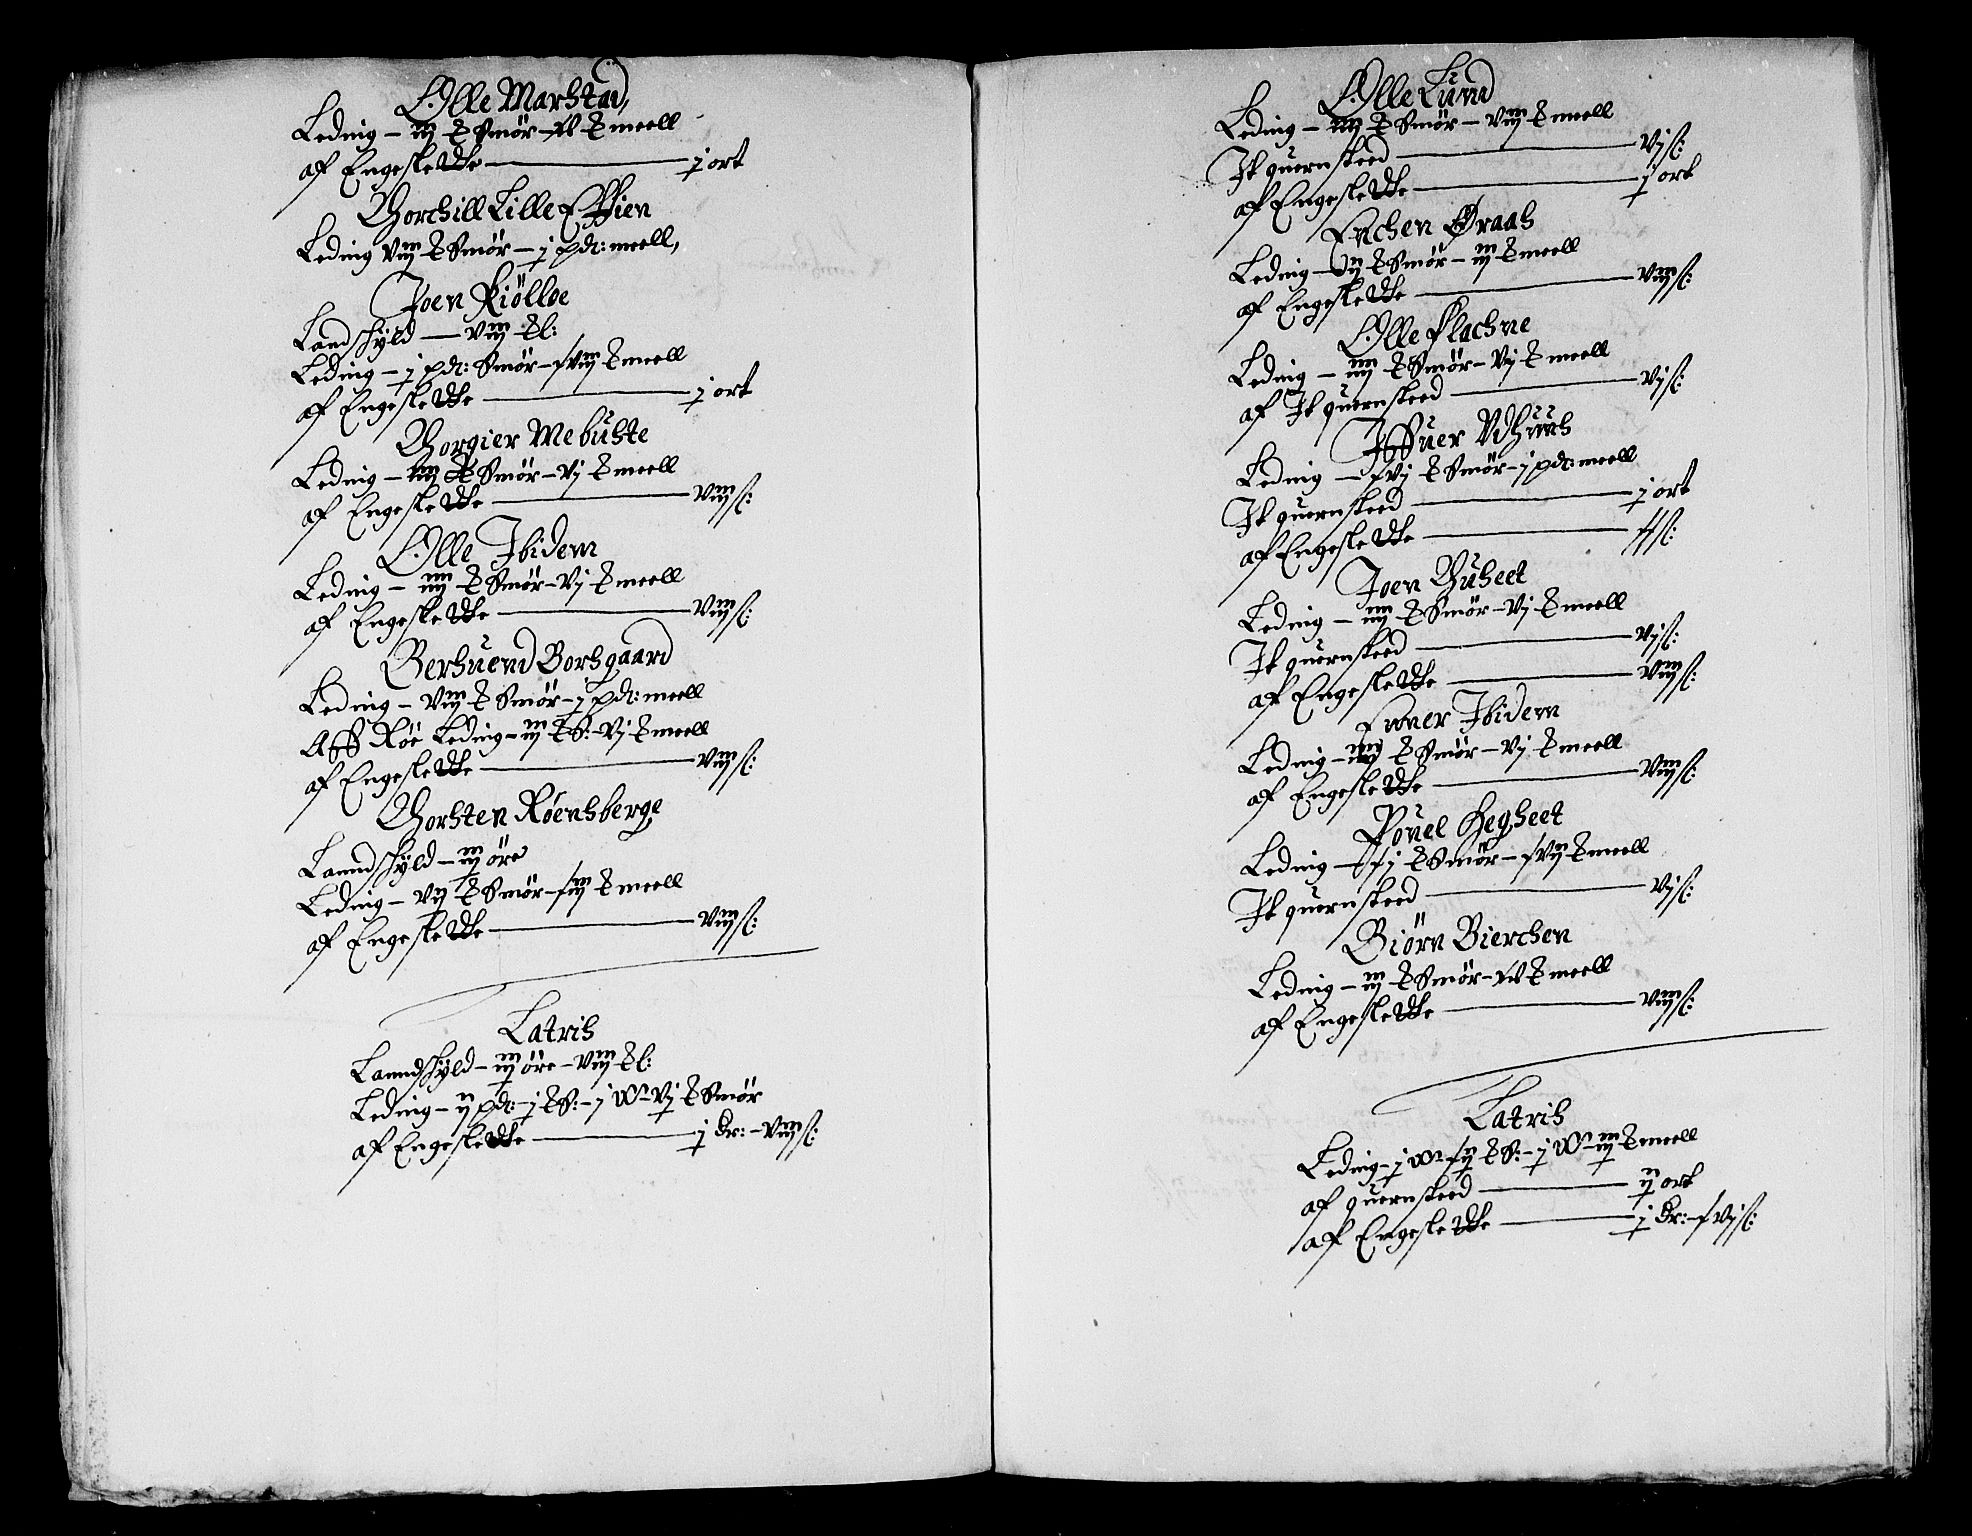 Olle Marstad,
Leding – iij ℔ Smör – ℔ meell
af Engeslette — j ort
Thorchill Lille Effien
Leding viij ℔ Smör – j pd: meell,
Joen Kiölloe
Landschyld — viij ℔ l:
Leding – j pd: Smör – ℔ meell
af Engeslette — j ort
Thorgier Mebuste
Leding – iiij ℔ Smör – vj ℔ meell
af Engeslette — viij s:
Olle Ibidem
Leding – iiij ℔ Smör – vj ℔ meell
af Engeslette — viij s:
Berhuend Borhgaard
Leding – viij ℔ Smör – j pd: meell
Aff Röe Leding – iij ℔ S: – vj ℔ meell
af Engeslette — viij s:
Thorsten Röensberge
Lanndschyld – iij öre
Leding – vij ℔ Smör – ℔ meell
af Engeslette — viij s:
Latris
Lanndschyld – iij öre – viij ℔ l:
Leding – ij pd: – j ℔ S: – j W – vj ℔ Smör
af Engeslette — j dr: – viij s:
Olle Lund
Leding – iiij ℔ Smör – viij ℔ meell
It quernsteed — vj s:
af Engeslette — j ort
Erichen Øraas
Leding – ℔ Smör – iij ℔ meell
af Engeslette — viij s:
Olle Flachne
Leding – iiij ℔ Smör – vij ℔ meell
af It quernsteed — vj s:
Iffuer Vdhuus
Leding — ℔ Smör – j pd: meell
It quernsteed — j ort
af Engeslette — s:
Joen Buseet
Leding – iiij ℔ Smör – vj ℔ meell
It quernsteed — vj s:
af Engeslette — viij s:
Ibidem
Leding – iiij ℔ Smör – vj ℔ meell
af Engeslette — viij s:
Povel Hegseet
Leding – ℔ Smör – ℔ meell
It quernsteed — vj s:
Biörn Bierchen
Leding – iij ℔ Smör – ℔ meell
af Engeslette — viij s:
Latris
Leding – j W ℔ S: – j W – iij ℔ meell
af quernsteed — ij ort
af Engeslette — j dr: – s: